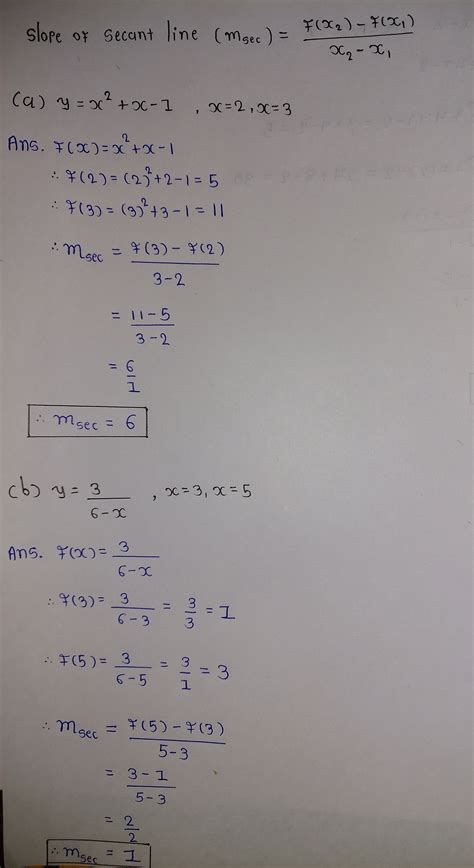 Slope of secant line (m_sec) = f(x₂) - f(x₁) / x₂ - x₁
(a) y = x² + x - 1 , x = 2, x = 3
Ans. f(x) = x² + x - 1
∴ f(2) = (2)² + 2 - 1 = 5
∴ f(3) = (3)² + 3 - 1 = 11
∴ m_sec = f(3) - f(2) / 3 - 2
= 11 - 5 / 3 - 2
= 6 / 1
∴ m_sec = 6
(b) y = 3 / 6 - x , x = 3, x = 5
Ans. f(x) = 3 / 6 - x
∴ f(3) = 3 / 6 - 3 = 3 / 3 = 1
∴ f(5) = 3 / 6 - 5 = 3 / 1 = 3
∴ m_sec = f(5) - f(3) / 5 - 3
= 3 - 1 / 5 - 3
= 2 / 2
∴ m_sec = 1